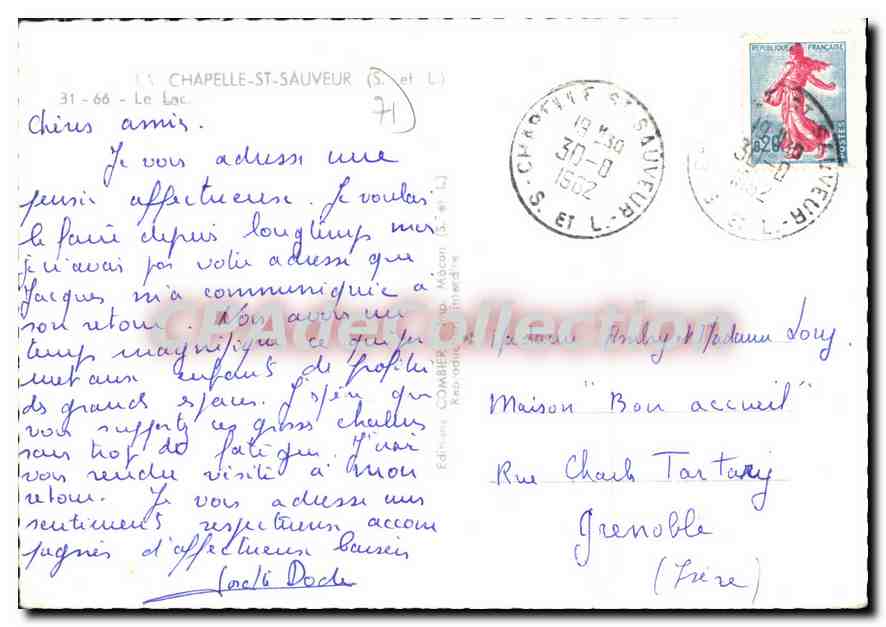 LA CHAPELLE-ST-SAUVEUR (S. et L.)
31-66 - Le Lac.
71
Chères amies.
Je vous adresse une
pensée affectueuse. Je voulais
le faire depuis longtemps mais
je n'avais pas votre adresse que
Jacques m'a communiquée à
son retour. Nous avons un
temps magnifique ce qui per
met aux enfants de profiter
des grands espaces. J'espère que
vous supportez ces grosses chaleurs
sans trop de fatigue. J'irai
vous rendre visite à mon
retour. Je vous adresse mes
sentiments respectueux accom
pagnés d'affectueux baisers
Editions COMBIER Imp. Mâcon (S. et L.)
Reproduction interdite
CHAPELLE ST SAUVEUR
19H30
30-8
1962
S. ET L.
REPUBLIQUE FRANÇAISE
0,20
POSTES
19H30
30-8
1962
S. ET L.
CPAdeCollection
et Madame Louy.
Maison "Bon accueil"
Rue Charles Tartary
Grenoble
(Isère)